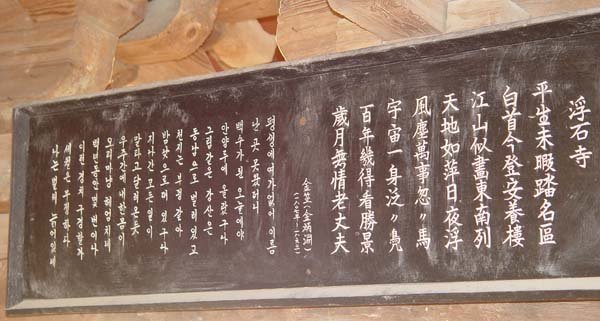 浮石寺
平生未暇踏名區
白首今登安養樓
江山似畵東南列
天地如萍日夜浮
風塵萬事忽〃馬
宇宙一身泛〃鳧
百年幾得看勝景
歲月無情老丈夫
金笠(金炳淵)
평생에 여가 없어 이름
난 곳 못 왔더니
백수가 된 오늘에야
안양루에 올랐구나
그림 같은 강산은
동남으로 벌려 있고
천지는 부평 같아
밤낮으로 떠 있구나
지나간 모든 일이
말 타고 달려온 듯
우주간에 내 한 몸이
오리마냥 헤엄치네
백년 동안 몇 번이나
이런 경치 구경할까
세월은 무정하다
나는 벌써 늙어 있네